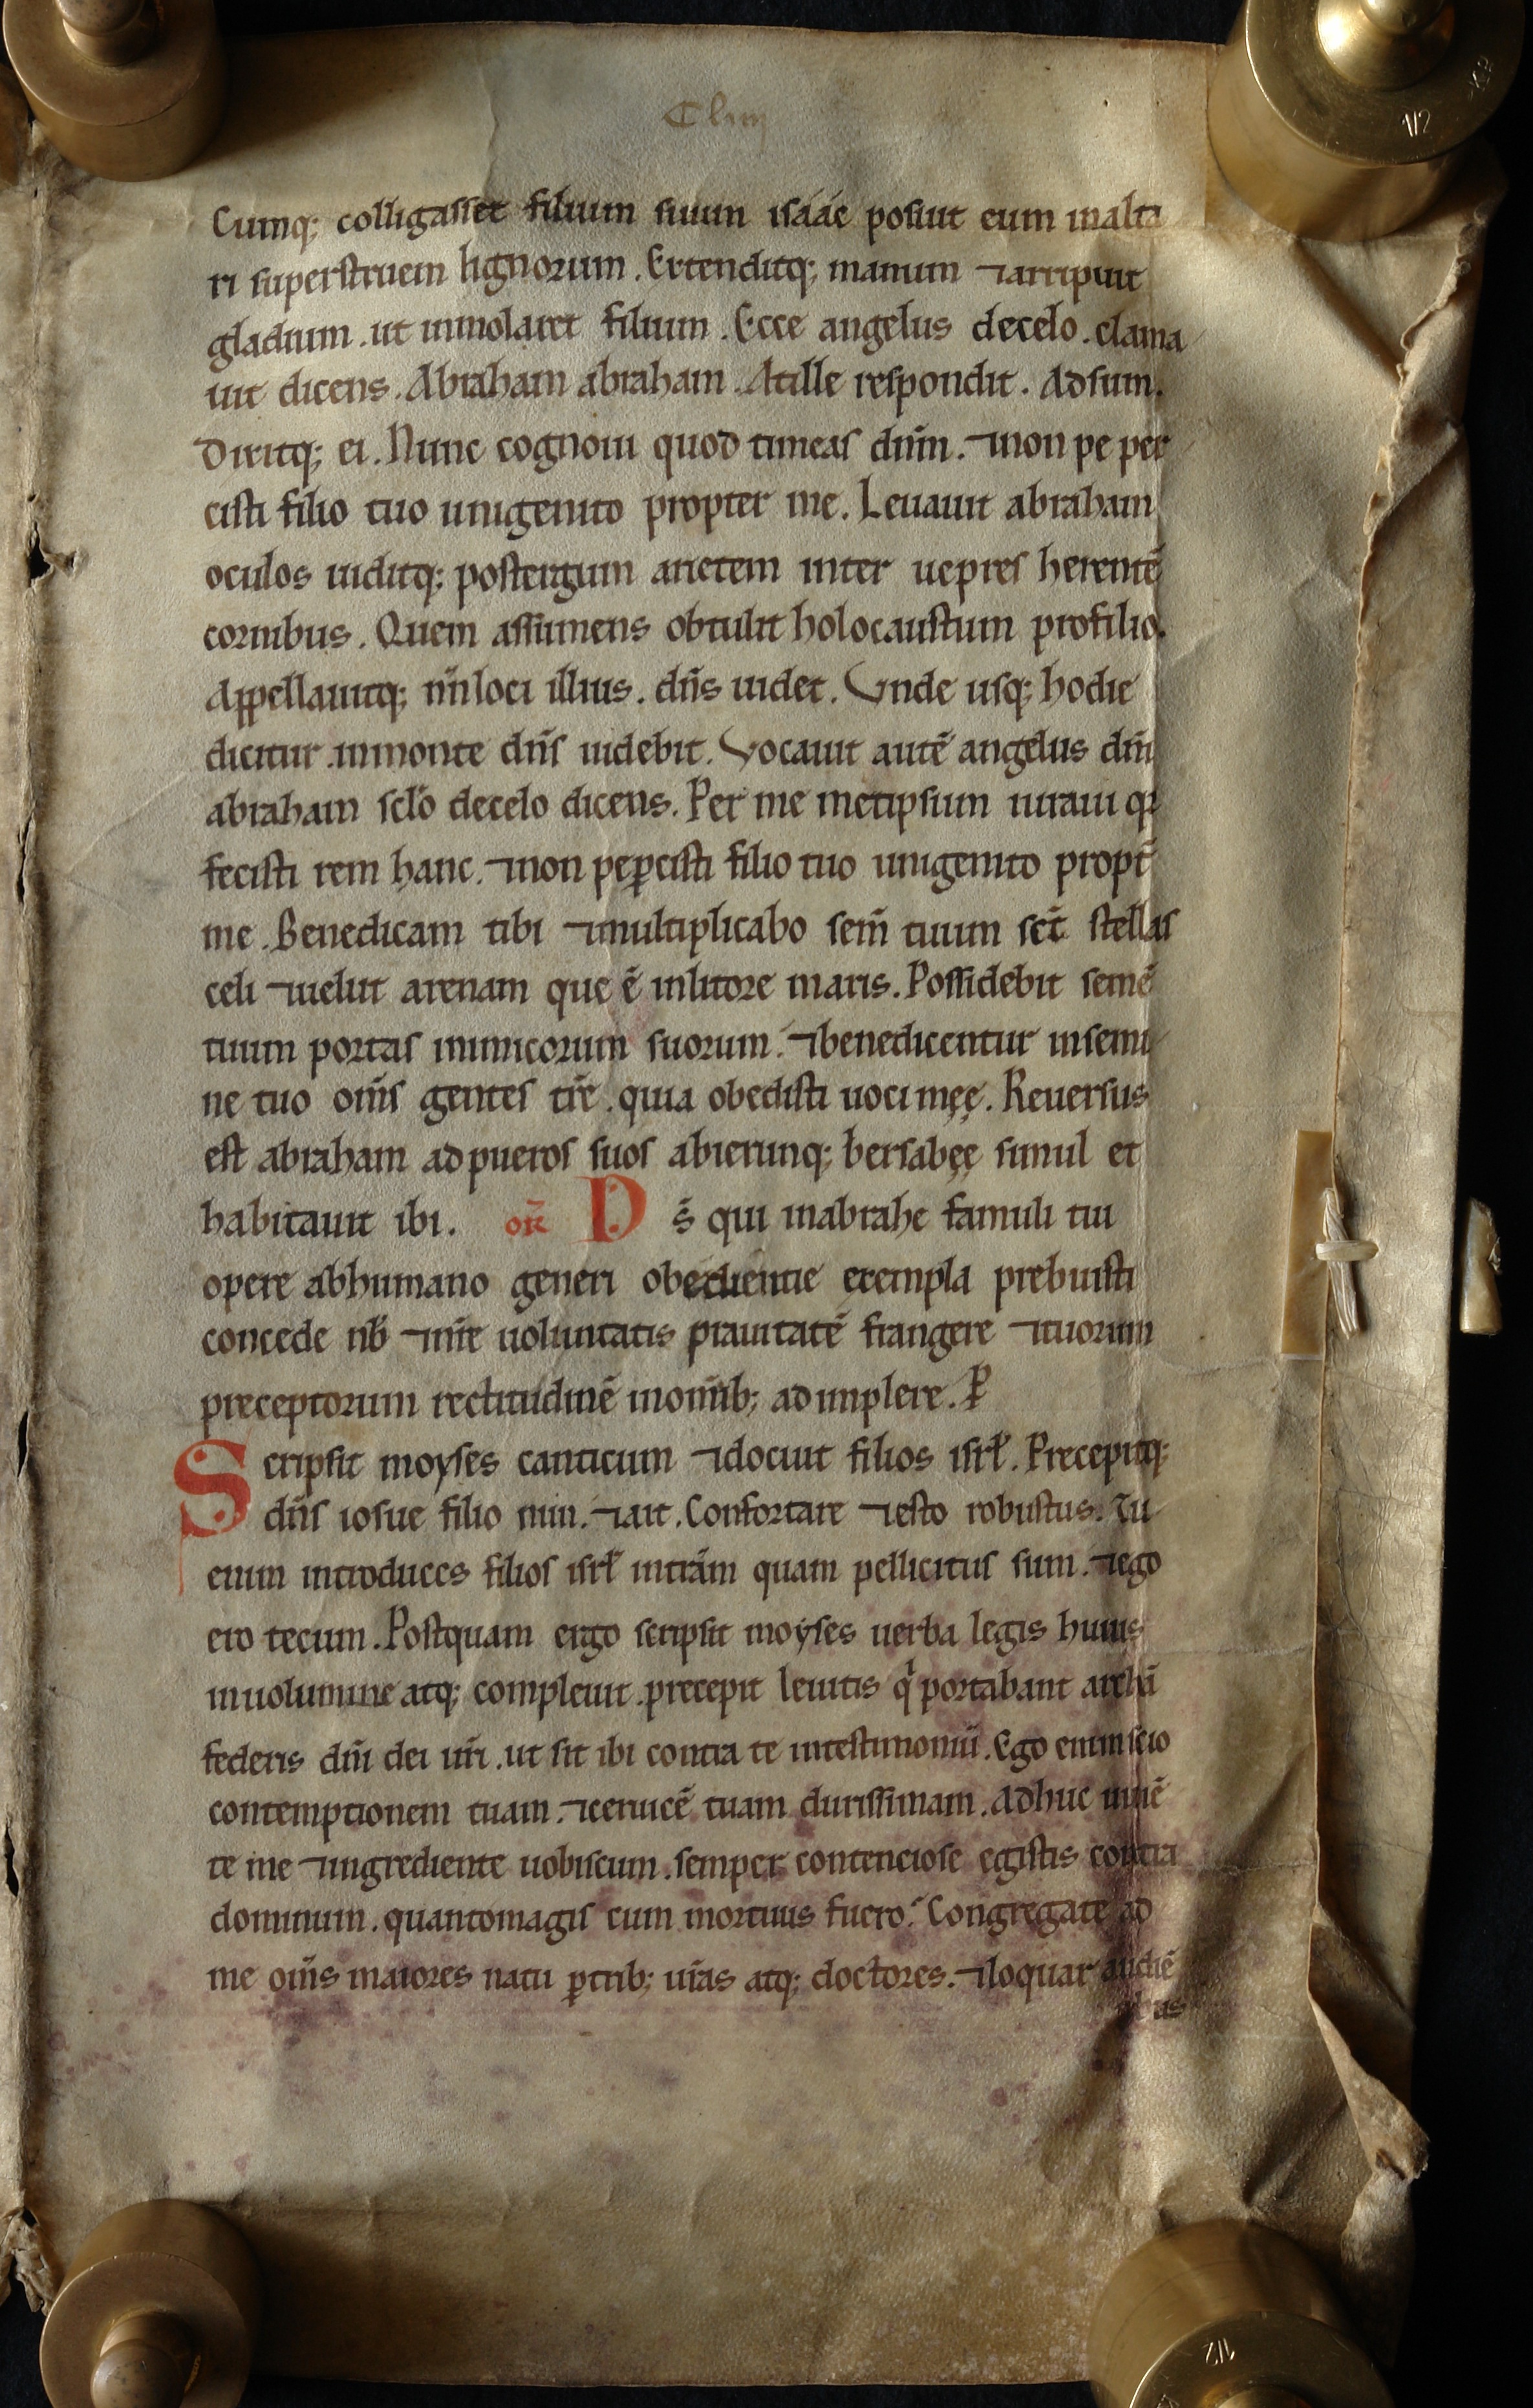 Cliiij
Cumq; colligasset filium suum isáác posuit eum inalta
ri superstruem lignorum. Extenditq; manum ⁊arripuit
gladium. ut inmolaret filium. Ecce angelus decelo. clama
uit dicens. Abraham abraham. Atille respondit. Adsum.
Dixitq; ei. Nunc cognoui quod timeas dn̄m. ⁊non pe per
cisti filio tuo unigenito propter me. Leuauit abraham
oculos uiditq; postergum arietem inter uepres herentē
cornibus. Quem assumens obtulit holocaustum profilio.
Appellauitq; nm̄ loci illius. dn̄s uidet. Vnde usq; hodie
dicitur. inmonte dn̄s uidebit. Vocauit autē angelus dn̄i
abraham scd̄o decelo dicens. Per me metipsum iuraui qꝛ
fecisti rem hanc. ⁊non peꝑcisti filio tuo unigenito propt̄
me. Benedicam tibi ⁊multiplicabo sem̄ tuum sic̄ stellas
celi ⁊uelut arenam que ē inlitore maris. Possidebit semē
tuum portas inimicorum suorum. ⁊benedicentur insemi
ne tuo om̄s gentes tr̄e. quia obedisti uoci meę. Reuersus
est abraham adpueros suos abieruntq; bersabeę simul et
habitauit ibi. or̄ D s̄ qui inabrahe famuli tui
opere abhumano generi obedientie exempla prebuisti
concede nb̄ ⁊nr̄e uoluntatis prauitatē frangere ⁊tuorum
preceptorum rectitudinē inom̄ib; adimplere. P̄
Scripsit moyses canticum ⁊docuit filios isrl̄. Precepitq;
dn̄s iosue filio nun. ⁊ait. Confortare ⁊esto robustus. Tu
enim introduces filios isrl̄ intr̄am quam pellicitus sum. ⁊ego
ero tecum. Postquam ergo scripsit moyses uerba legis huius
inuolumine atq; compleuit. precepit leuitis qⁱ portabant archā
federis dn̄i dei ur̄i. ut sit ibi contra te intestimoniū. Ego enim scio
contemptionem tuam. ⁊ceruicē tuam durissimam. Adhuc uiuē
te me ⁊ingrediente uobiscum. semper contenciose egistis contra
dominum. quantomagis cum mortuus fuero. Congregate ad
me om̄s maiores natu ꝑtrib; ur̄as atq; doctores. ⁊loquar audiē